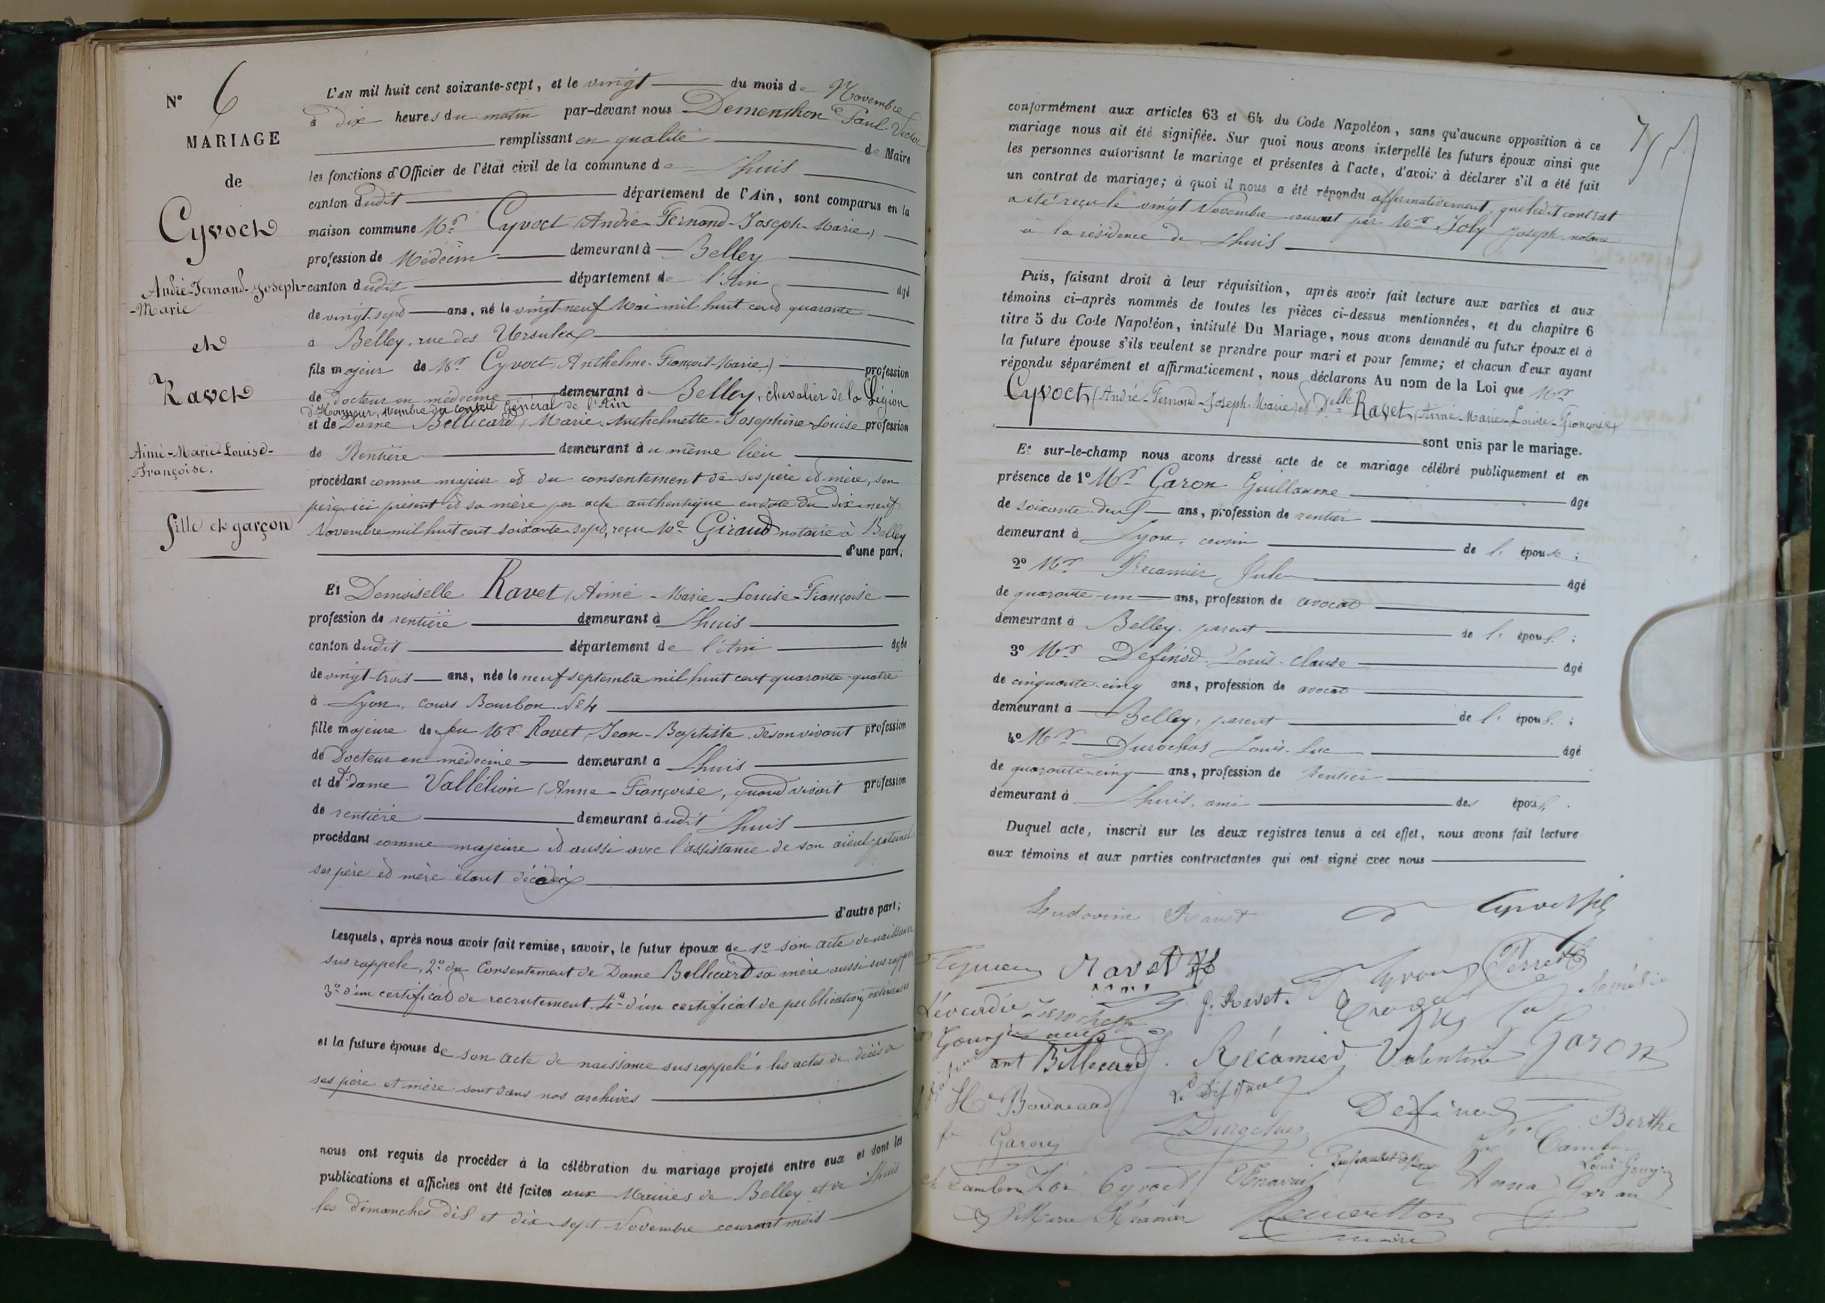 N° 6
MARIAGE
de
Cyvoct
André-Fernand-Joseph-
-Marie
et
Ravet
Aimé-Marie-Louise-
-Françoise.
fille et garçon
L'AN mil huit cent soixante-sept, et le vingt du mois de Novembre
à dix heures du matin par-devant nous Dementhon Paul Victor
remplissant en qualité de Maire
les fonctions d'Officier de l'état civil de la commune de Lhuis
canton dudit département de l'Ain, sont comparus en la
maison commune Mr Cyvoct (André-Fernand-Joseph-Marie)
profession de Médecin demeurant à Belley
canton dudit département de l'Ain âgé
de vingt-sept ans, né le vingt neuf Mai mil huit cent quarante
à Belley, rue des Ursules
fils majeur de Mr Cyvoct (Anthelme-François-Marie) profession
de Docteur en médecine demeurant à Belley, chevalier de la Légion
d'Honneur, Membre du Conseil Général de l'Ain
et de Dame Bellicard (Marie-Anthelmette-Joséphine-Louise profession
de Rentière demeurant au même lieu
procédant comme majeur et du consentement de ses père et mère, son
père, ici présent et sa mère par acte authentique en date du dix neuf
Novembre mil huit cent soixante-sept, reçu Me Giraud notaire à Belley
d'une part;
Et Demoiselle Ravet (Aimé-Marie-Louise-Françoise
profession de rentière demeurant à Lhuis
canton dudit département de l'Ain âgée
de vingt-trois ans, née le neuf septembre mil huit cent quarante quatre
à Lyon, cours Bourbon N° 4
fille majeure de feu Mr Ravet, Jean-Baptiste, de son vivant profession
de Docteur en médecine demeurant à Lhuis
et de dame Vallélion (Anne-Françoise, quand vivait profession
de rentière demeurant audit Lhuis
procédant comme majeure et aussi avec l'assistance de son aïeul paternel
ses père et mère étant décédés
d'autre part;
Lesquels, après nous avoir fait remise, savoir, le futur époux de 1° son acte de naissance
sus rappelé, 2° du Consentement de Dame Bellicard sa mère aussi sus rappelé
3° d'un certificat de recrutement 4° d'un certificat de publication
et la future épouse de son acte de naissance sus rappelé; les actes de décès de
ses père et mère sont dans nos archives
nous ont requis de procéder à la célébration du mariage projeté entre eux et dont les
publications et affiches ont été faites aux Mairies de Belley et de Lhuis
les dimanches dix et dix-sept Novembre courant mois
conformément aux articles 63 et 64 du Code Napoléon, sans qu'aucune opposition à ce
mariage nous ait été signifiée. Sur quoi nous avons interpellé les futurs époux ainsi que
les personnes autorisant le mariage et présentes à l'acte, d'avoir à déclarer s'il a été fait
un contrat de mariage; à quoi il nous a été répondu affirmativement, que ledit contrat
a été reçu le vingt Novembre courant par Me Joly Joseph notaire
à la résidence de Lhuis
Puis, faisant droit à leur réquisition, après avoir fait lecture aux parties et aux
témoins ci-après nommés de toutes les pièces ci-dessus mentionnées, et du chapitre 6
titre 5 du Code Napoléon, intitulé Du Mariage, nous avons demandé au futur époux et à
la future épouse s'ils veulent se prendre pour mari et pour femme; et chacun d'eux ayant
répondu séparément et affirmativement, nous déclarons Au nom de la Loi que Mr
Cyvoct, (André-Fernand-Joseph-Marie) et Delle Ravet, (Aimé-Marie-Louise-Françoise)
sont unis par le mariage.
Et sur-le-champ nous avons dressé acte de ce mariage célébré publiquement et en
présence de 1° Mr Garon Guillaume âgé
de soixante-deux ans, profession de rentier
demeurant à Lyon, cousin de l'épouse;
2° Mr Récamier, Jules âgé
de quarante-un ans, profession de avocat
demeurant à Belley, parent de l'époux;
3° Mr Définod Louis-Claude âgé
de cinquante-cinq ans, profession de avocat
demeurant à Belley, parent de l'époux;
4° Mr Durochas Louis-Luc âgé
de quarante-cinq ans, profession de Rentier
demeurant à Lhuis, ami des époux.
Duquel acte, inscrit sur les deux registres tenus à cet effet, nous avons fait lecture
aux témoins et aux parties contractantes qui ont signé avec nous
Ludovine Ravet Cyvoct fils
Ravet
J. Ravet. Cyvoct Perret
ant Bellicard Récamier Valentine Garon
Bonneaud
Garon Définod Berthe
Cyvoct Anna Garau
Marie Récamier Dementhon
maire